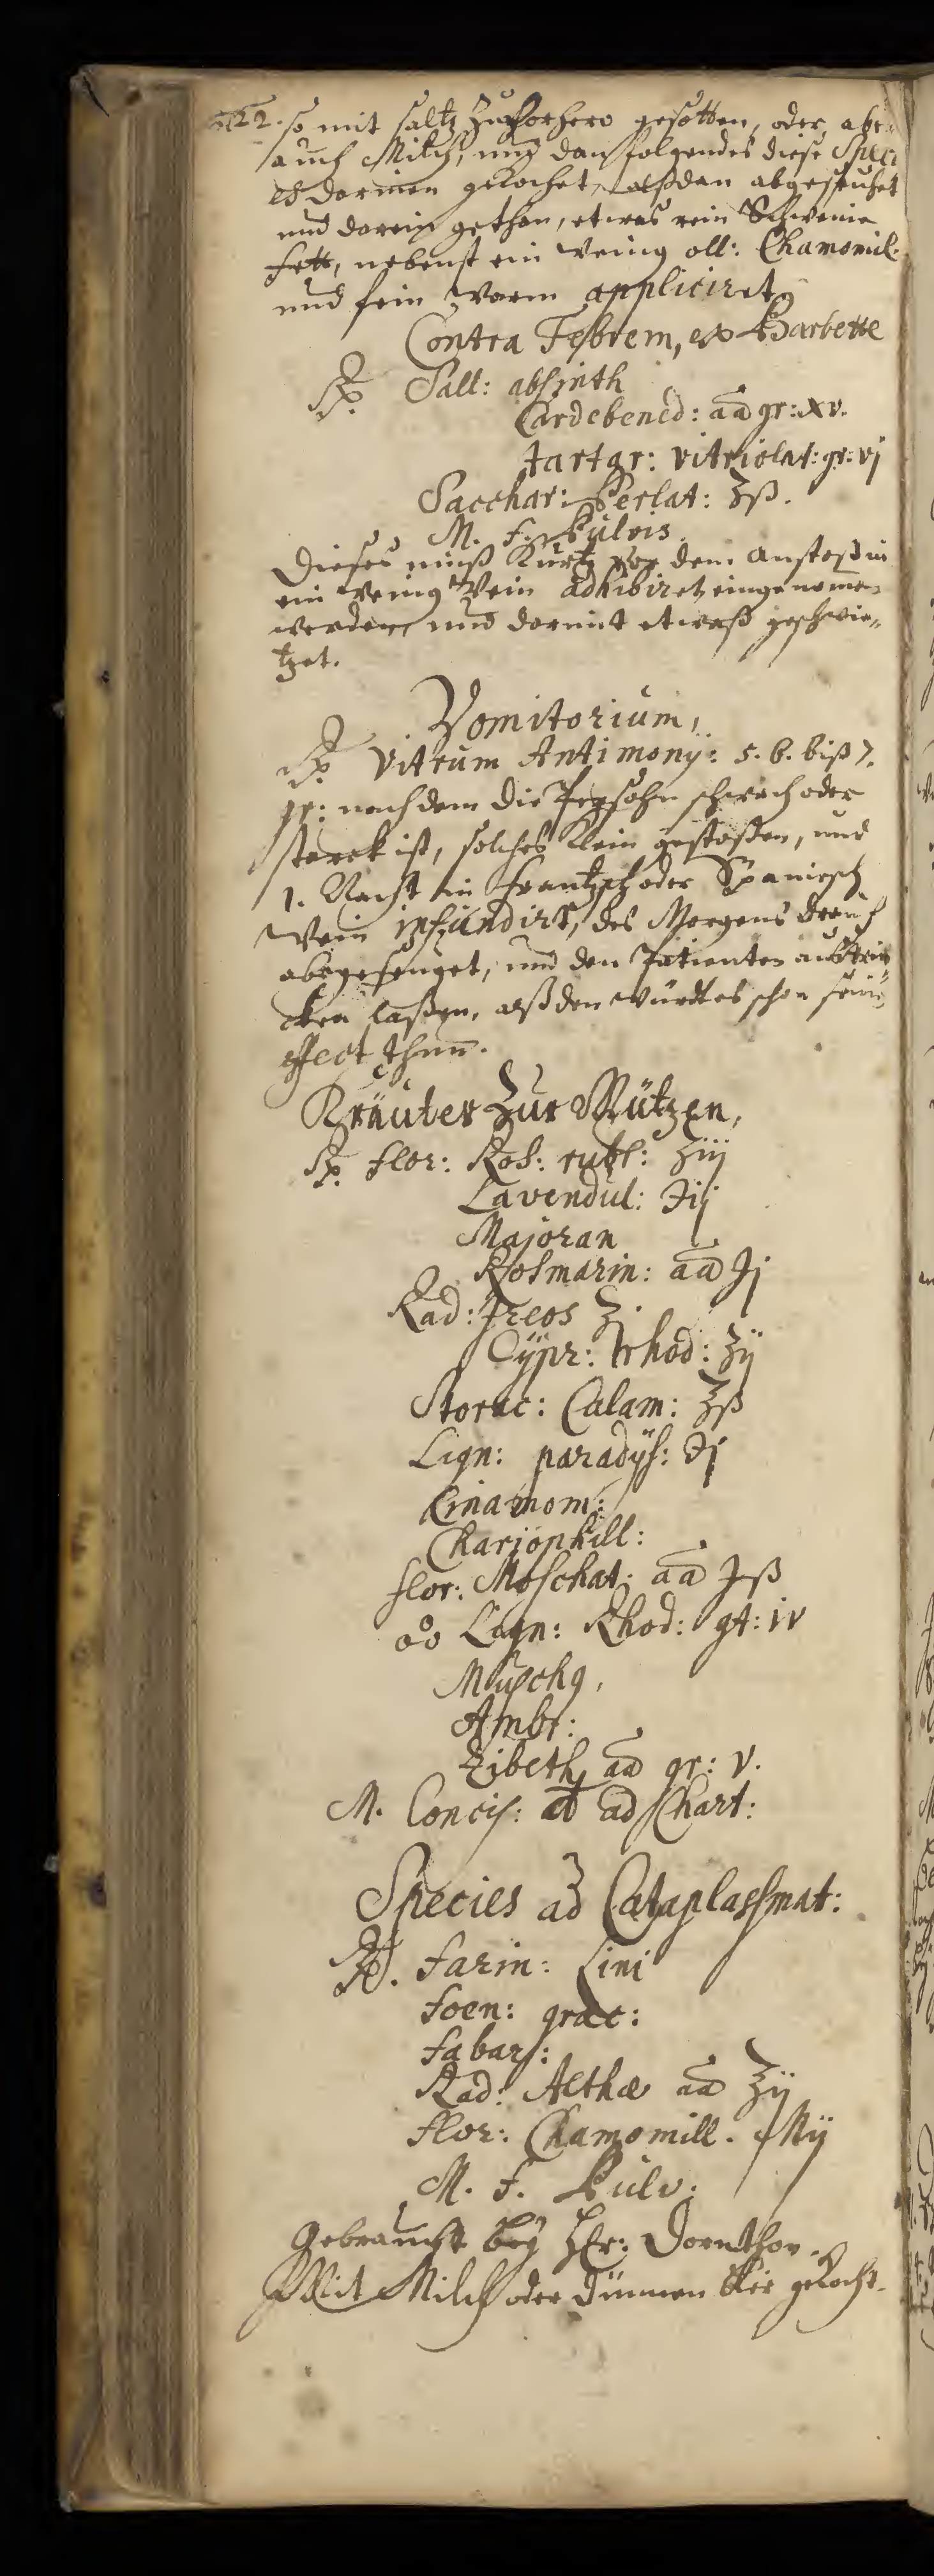 so mit saltz zuvorhero gesotten, oder, aber
auch Milch, und dan folgendes diese Speci
es darinnen gekochet, alßdan abgeseuhet
und darein gethan, etwas rein Schweine
fett, nebenst ein wenig oll: Chamomil:
und fein warm appliciret.
Contra Febrem, ex Barbette
℞ Sall: absinth
Cardebened: aa gr: xv.
tartar: vitriolat: gr: vj
Sacchar: Perlat: ʒß.
M. f. Pulvis.
Dieses muß Kurtz vor dem Anstoß in
ein wenig Wein adhibiret, eingenomen
werden, und darmit etwaß geschwi„
tzet.
Vomitorium,
℞ Vitrum Antimonÿ: 5. 6. biß 7.
gr: nach dem die Persohn schwach oder
starck ist, solches Klein gestoßen, und
1. Nacht in Frantzsch oder Spanisch
Wein infundirt, des Morgens drauf
abgeseuget, und den Patienten außtrin
cken laßen, alßden würdt es schon sein
effect thun.
Kräuter Zur Mützen,
℞ flor: Ros: rubr: ʒiij
Lavendul: ʒij
Majoran
Rosmarin: aa ʒj
Rad: Jreos ʒ
Cÿpr: rhod: ʒij
Storac: Calam: ʒß
Lign: paradÿs: ʒj
Cinamom:
Chariophill:
flor: Moschat: aa ʒß
Lign: Rhod: gt: iv
Muschg,
Ambr:
Zibeth, aa gr: V.
M. Concis: ad Chart:
Species ad Cataplassmat:
℞. farin: Lini
foen: graec:
fabar:
Rad: Althæ aa ʒij
flor: Chamomill. Mij
M. f. Pulv:
Gebraucht beÿ Hr: Dornthon.
Mit Milch oder dünnen Bier gekocht.